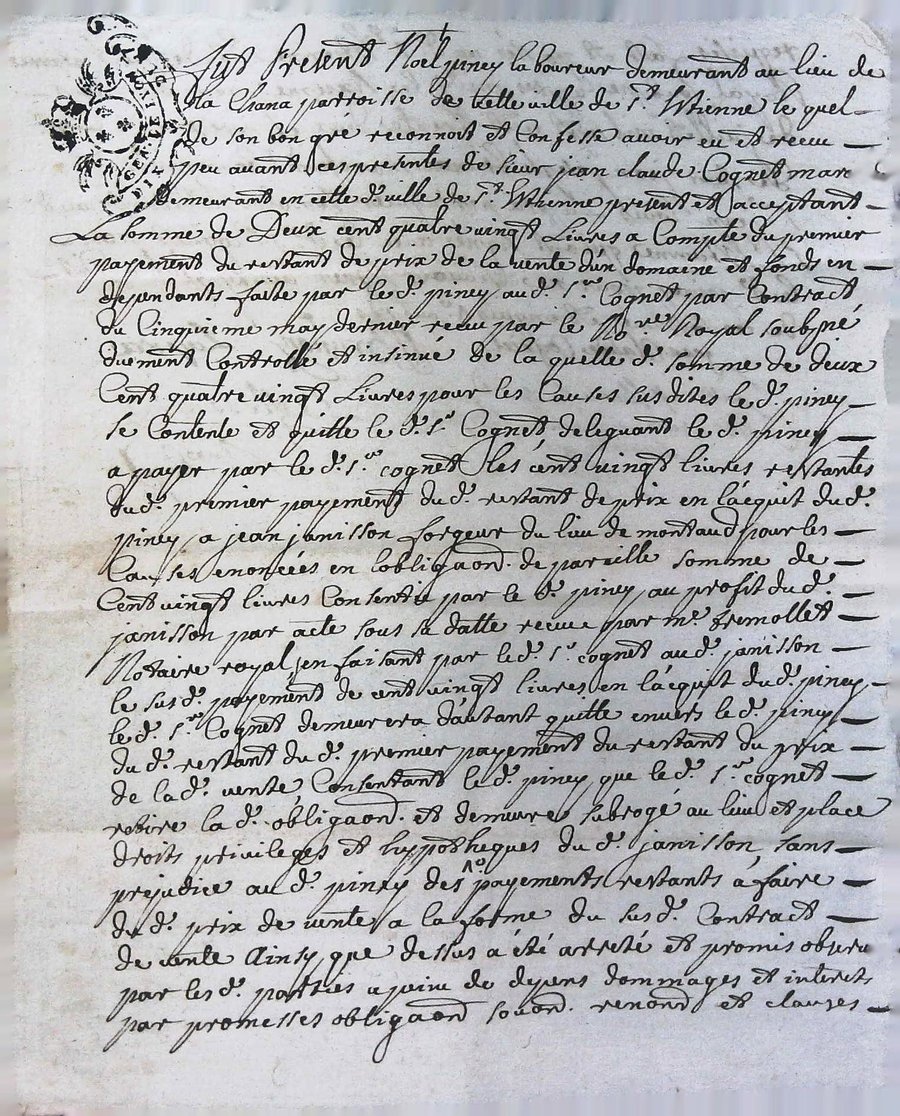 Fut Present Noël piney laboureur demeurant au lieu de
la Chana parroisse de cette ville de St. Etienne le quel
de son bon gré reconnoit et Confesse avoir eu et recu
peu avant ces presentes de sieur jean claude Cognet marc
demeurant en cette de. ville de St. Etienne present et acceptant
La somme de Deux cent quatre vingt Livres a Compte du premier
payement du restant de prix de la vente d'un domaine et fonds en
dependants faite par le d. piney au d. Sr. Cognet par Contract
du Cinquieme may dernier recu par le No.re Royal soubsné
duement Controllé et insinué de la quelle d. somme de deux
Cent quatre vingt Livres pour les Causes susdites le d. piney
se Contente et quitte le d. Sr. Cognet deleguant le d. piney
a payer par le d. Sr. cognet les cent vingt livres restantes
du d. premier payement du d. restant de prix en l'acquit du d.
piney a jean janisson forgeur du lieu de montaud pour les
Causes enoncées en l'obligaon. de pareille somme de
Cent vingt livres Consentie par le d. piney au profit du d.
janisson par acte sous sa datte recue par me. fremollet
Notaire royal, en faisant par le d. Sr. cognet au d. janisson
le susd. payement de cent vingt livres en l'acquit du d. piney
le d. Sr. Cognet demeurera d'autant quitte envers le d. piney
du d. restant du d. premier payement du restant du prix
de la d. vente, Consentant le d. piney que le d. Sr. cognet
retire la d. obligaon. et demeure subrogé au lieu et place
droits privileges et hyppotheques du d. janisson, sans
prejudice au d. piney des payements restants a faire
du d. prix de vente a la forme du susd. Contract
de vente Ainsy que dessus a été arreté et promis observe
par les d. parties a peine de depens dommages et interets
par promesses obligaon soon. renon. et clauses
GEN DIX